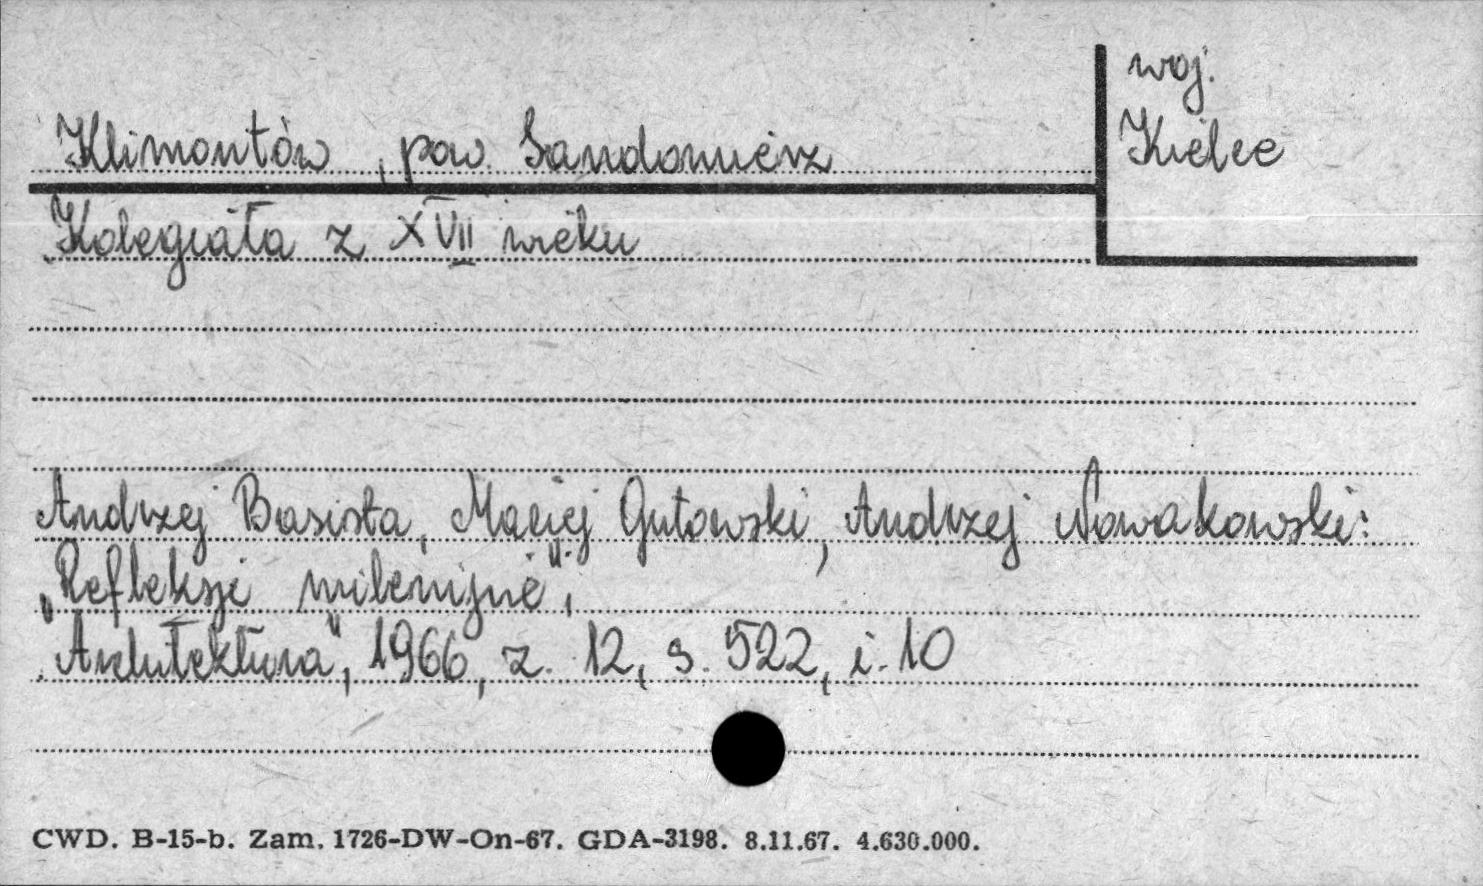 woj.
Kielce
Klimontów, pow. Sandomierz
Kolegiata z XVII wieku
Andrzej Basista, Maciej Gutowski, Andrzej Nowakowski:
„Refleksje milenijne",
Architektura", 1966, z. 12, s. 522, i. 10
CWD. B-15-b. Zam. 1726-DW-On-67. GDA-3198. 8.11.67. 4.630.000.